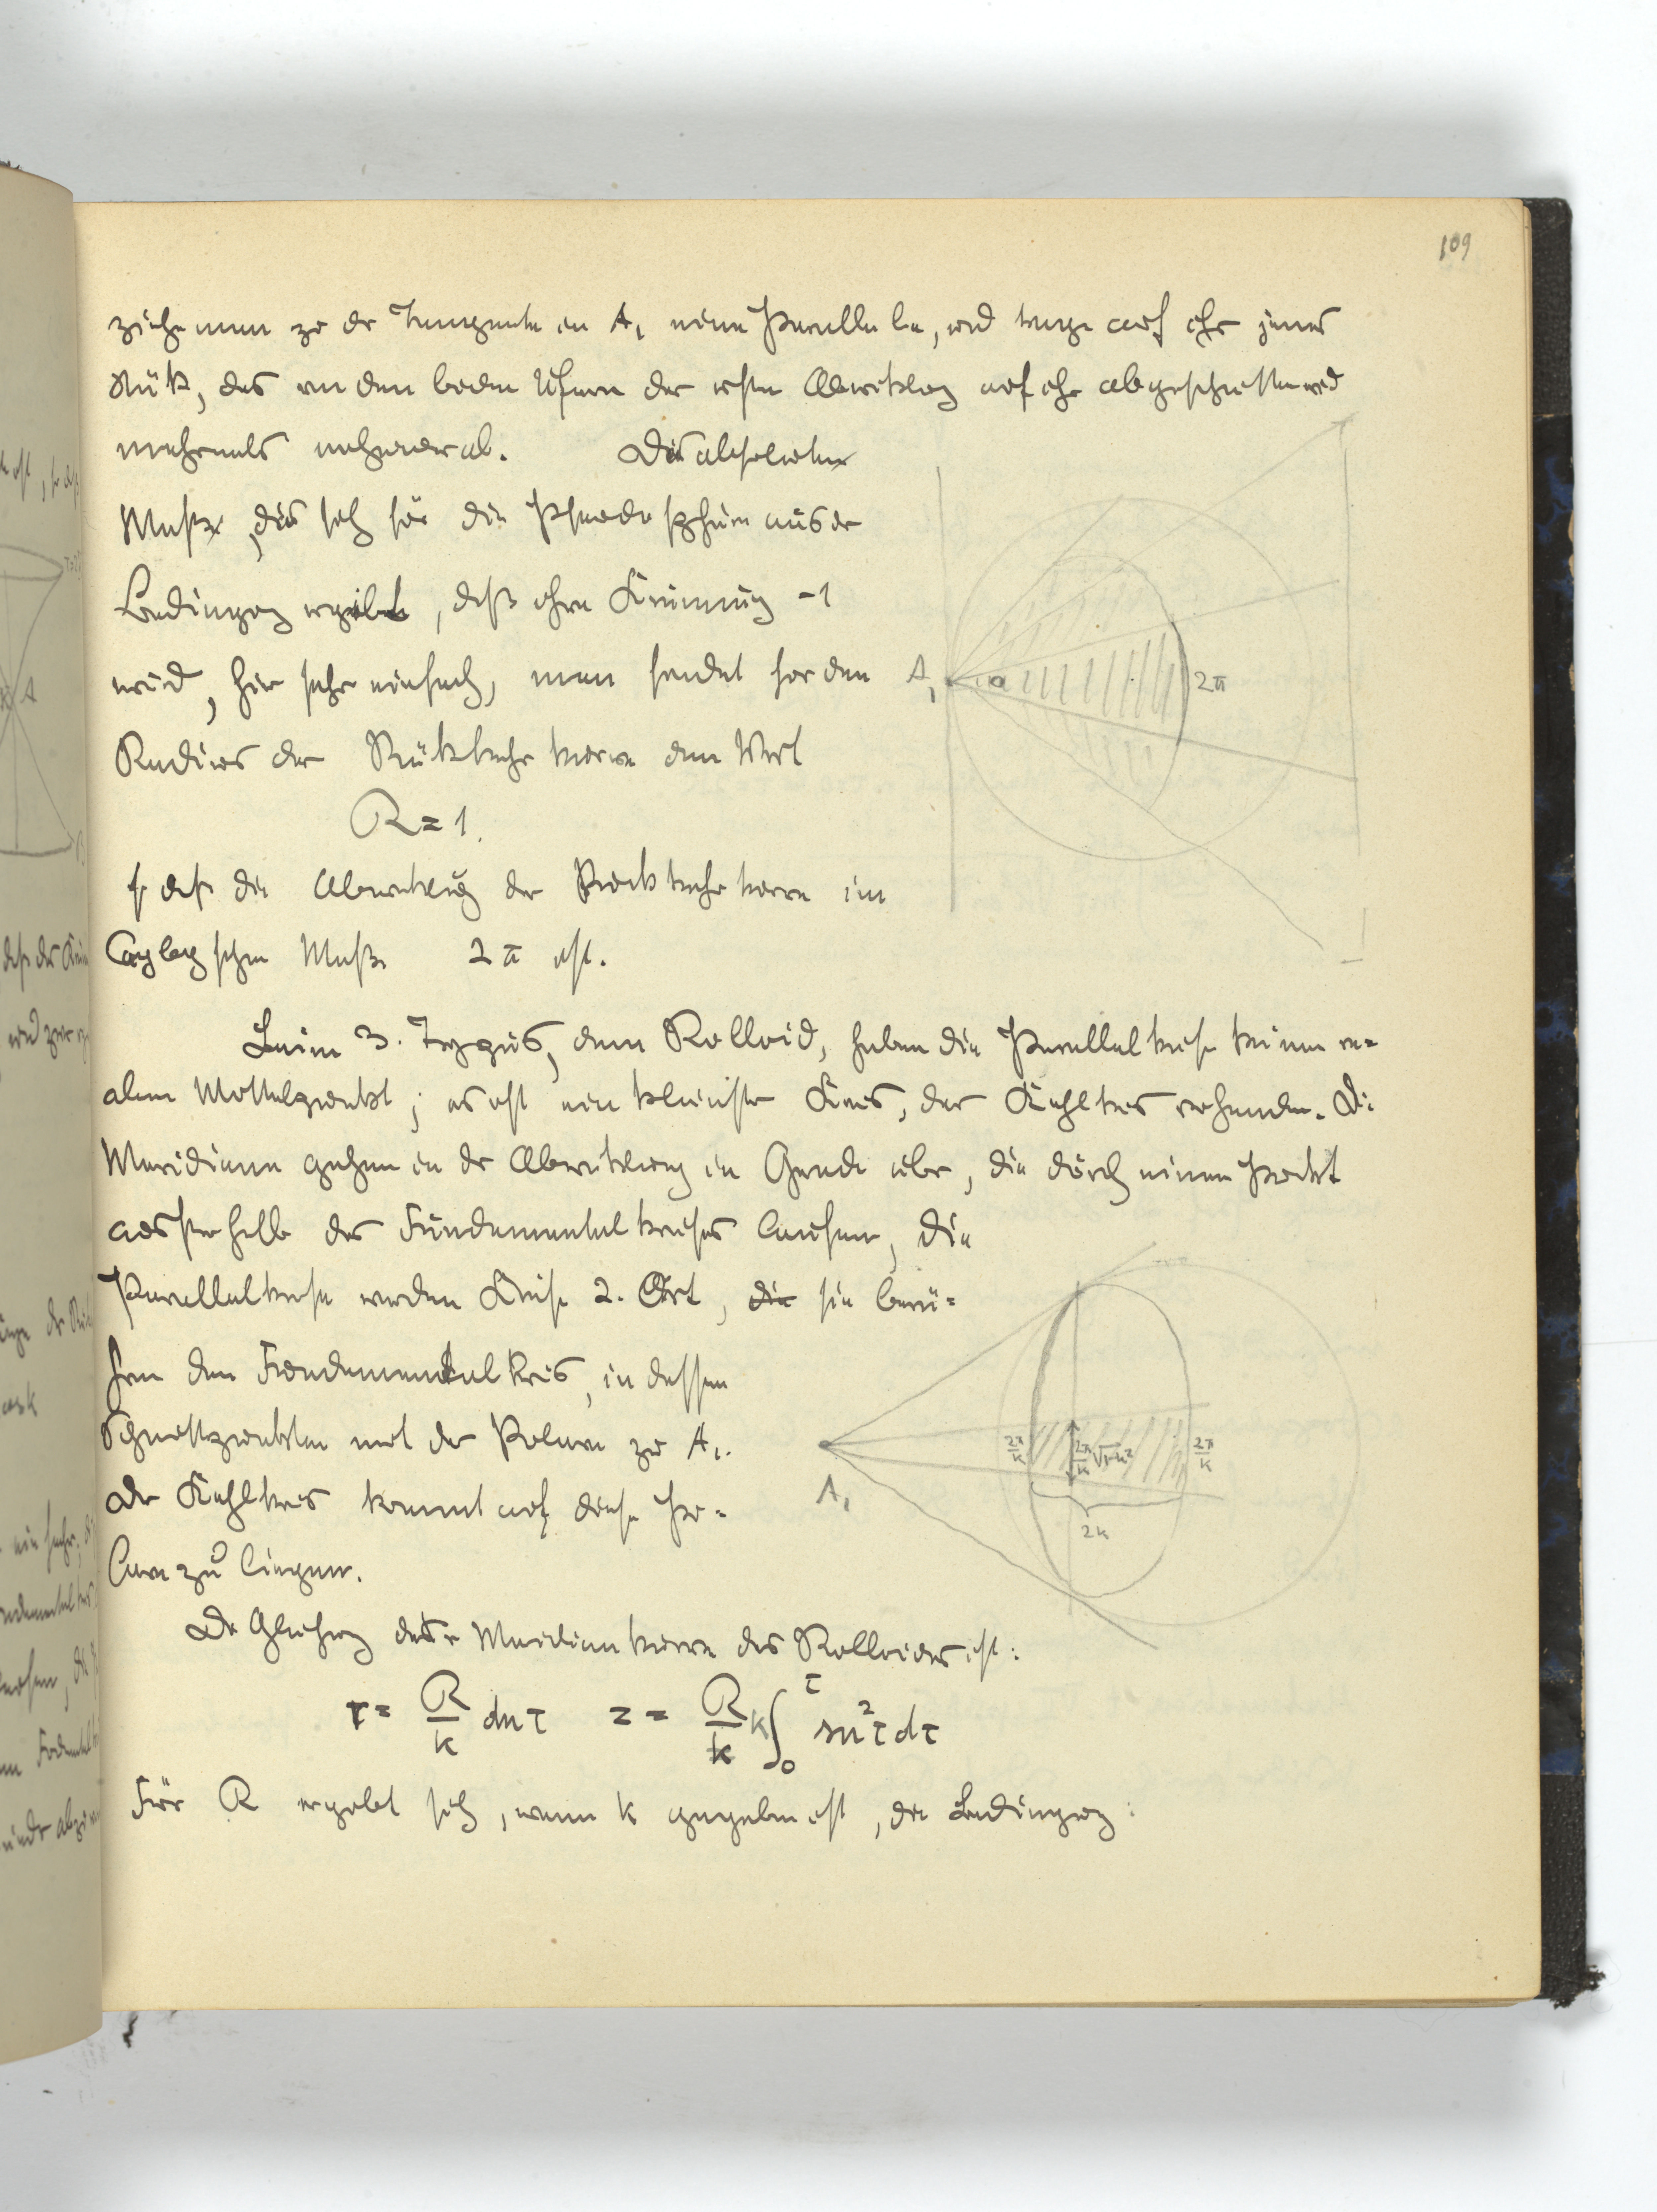 109
ziehe man zu der Tangente in A₁ eine Parallele, und trage auf ihr jenes
Stük, das von den beiden Ufern der ersten Abwiklung auf ihr abgeschnitten wird
mehrmals nacheinander ab. Die absoluten
Maße, die sich für die Pseudosphäre aus der
Bedingung ergibt, daß ihre Krümmung -1
wird, hier sehr einfach, man findet für den
Radius der Rükkehrkurve den Wert
R = 1.
so daß die Abwicklung der Rückkehrkurve im
Cayleyschen Maße 2π ist.
Beim 3. Typus, dem Rolloid, haben die Parallelkreise keinen re=
alen Mittelpunkt; es ist ein kleinster Kreis, der Kehlkreis vorhanden. Die
Meridiane gehen in der Abwicklung in Gerade über, die durch einen Punkt
ausserhalb des Fundamentalkreises laufen, die
Parallelkreise werden Kreise 2. Art, die sie berü=
hren den Fundamentalkreis, in dessen
Schnittpunkten mit der Polare zu A₁.
Der Kehlkreis kommt auf diese Po=
lare zu liegen.
Die Gleichung der Meridiankurve des Rolloides ist:
r = R/k dn τ z = R/k k ∫₀^τ sn²τ dτ
Für R ergibt sich, wenn k gegeben ist, die Bedingung:
A₁
α
2π
A₁
2π/k
2π/k √1-k²
2π/k
2κ